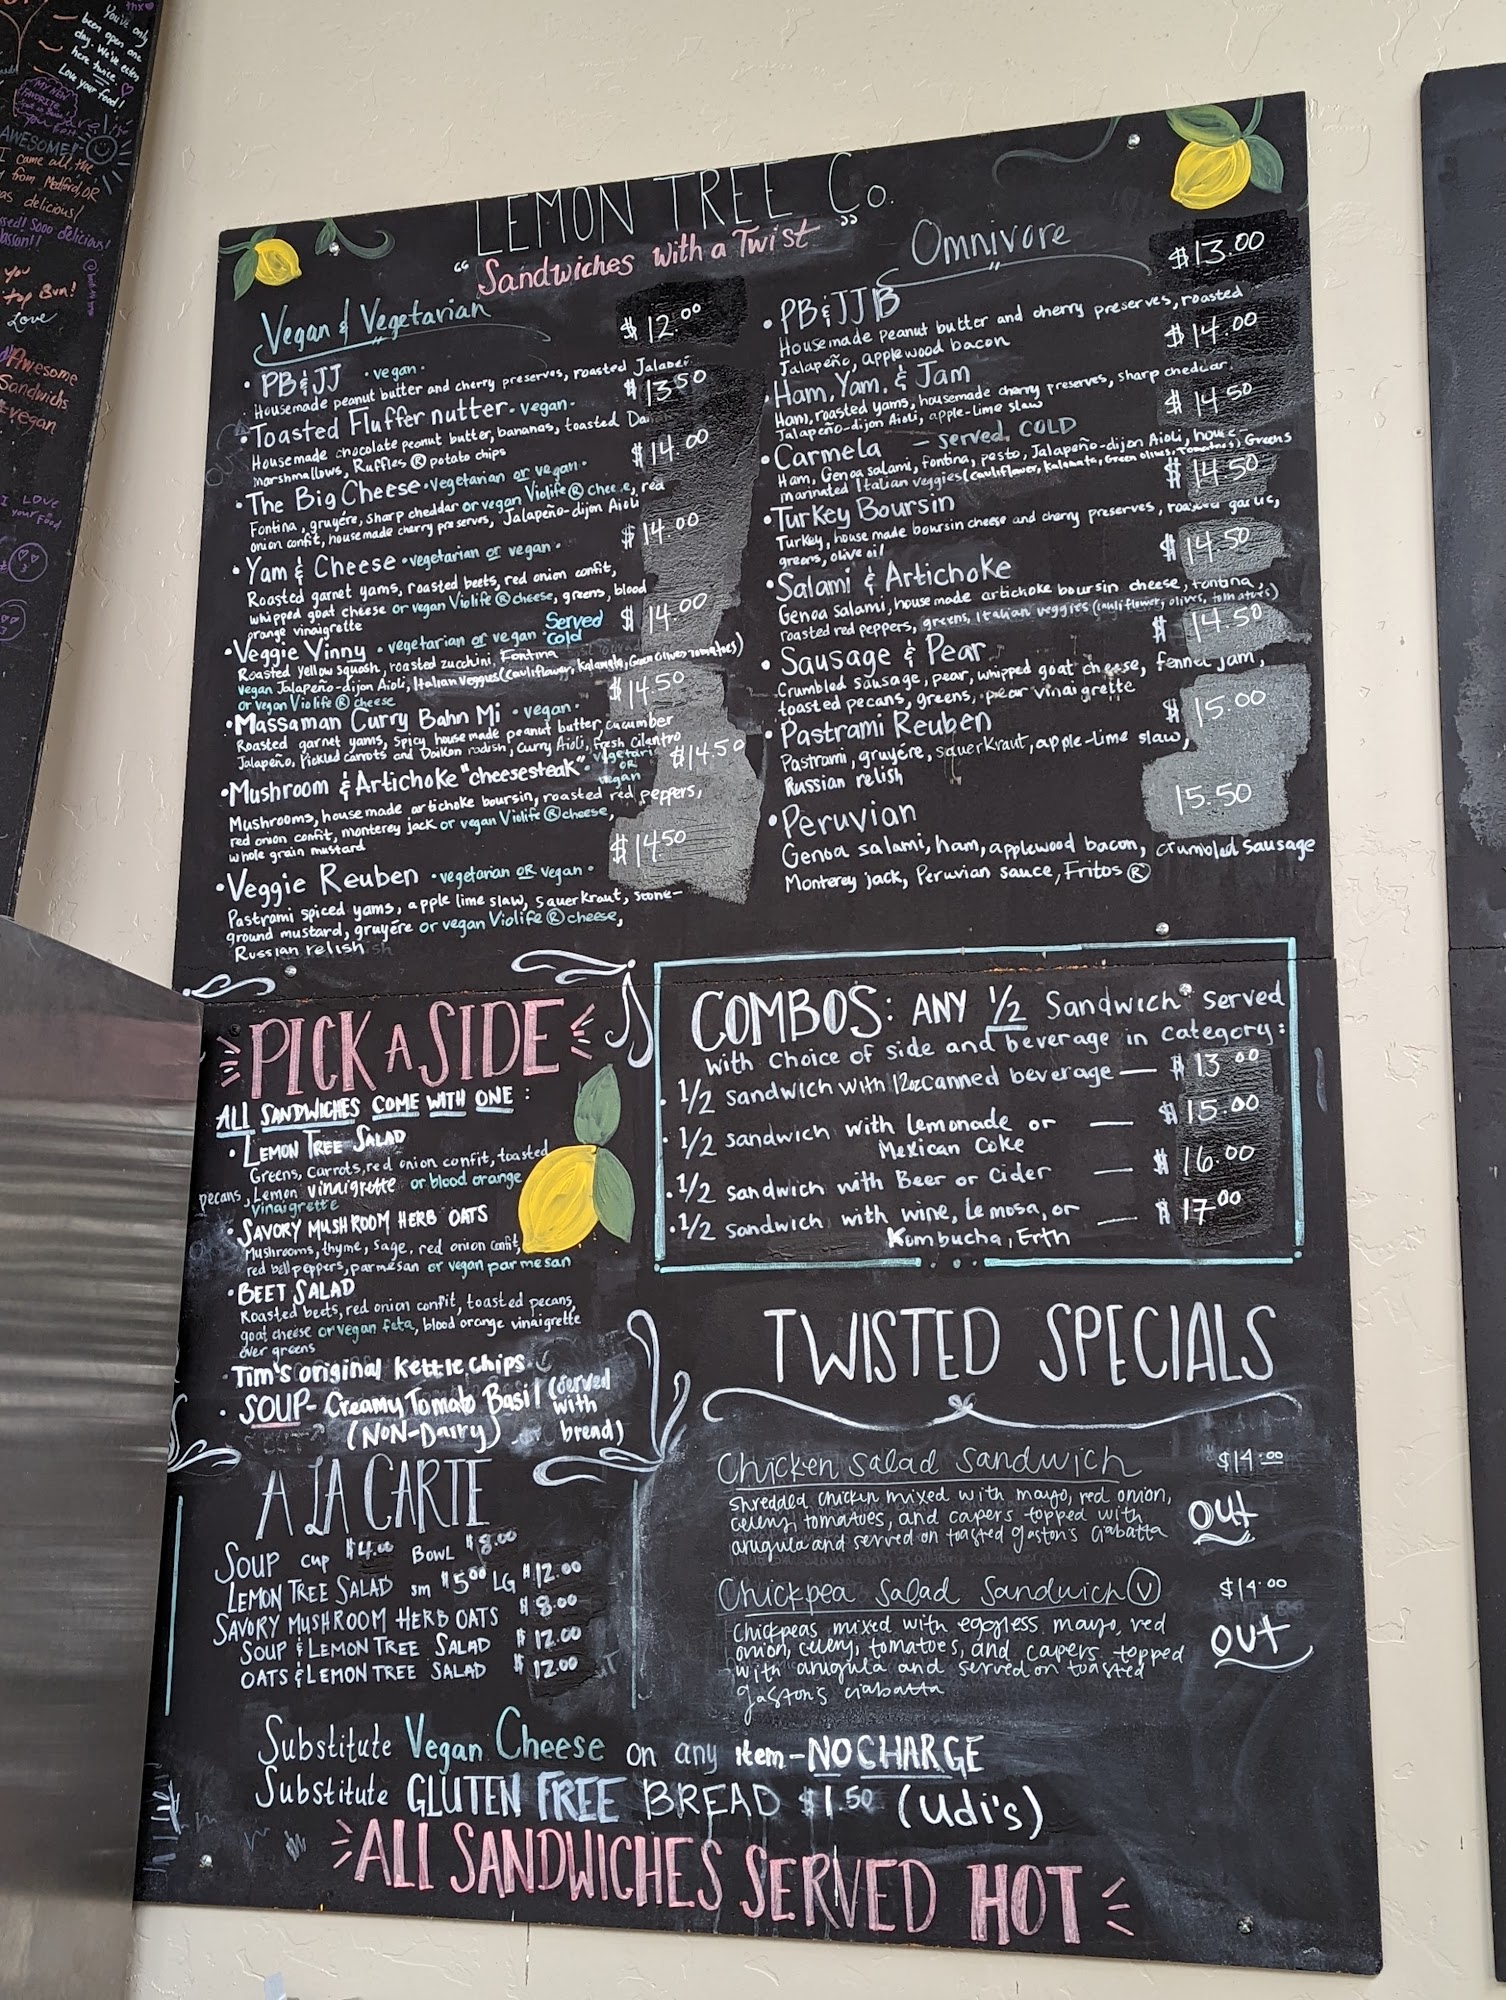 You've only
been open one
day. We've eaten
here twice.
Love your food!
MY NEW
FAVORITE
AWESOME!
I came all the
from Medford, OR
as delicious!
Sooo delicious!
you
top Bun!
Love
Awesome
Sandwichs
vegan
I LOVE
your food
LEMON TREE Co.
"Sandwiches with a Twist"
Vegan & Vegetarian
$12.00
• PB&JJ • vegan •
Housemade peanut butter and cherry preserves, roasted Jalapeñ
$13.50
• Toasted Fluffer nutter • vegan •
Housemade chocolate peanut butter, bananas, toasted Da
Marshmallows, Ruffles ® potato chips
$14.00
• The Big Cheese • vegetarian or vegan •
Fontina, gruyére, sharp cheddar or vegan Violife ® cheese, red
onion confit, housemade cherry preserves, Jalapeño-dijon Aioli
$14.00
• Yam & Cheese • vegetarian or vegan •
Roasted garnet yams, roasted beets, red onion confit,
whipped goat cheese or vegan Violife ® cheese, greens, blood
orange vinaigrette
$14.00
• Veggie Vinny • vegetarian or vegan Served Cold
Roasted Yellow Squash, roasted zucchini, Fontina
vegan Jalapeño-dijon Aioli, Italian Veggies (Cauliflower, Kalamata, Green Olives Tomatoes)
or vegan Violife ® cheese
$14.50
• Massaman Curry Bahn Mi • vegan •
Roasted garnet yams, spicy housemade peanut butter, cucumber
Jalapeño, Pickled carrots and Daikon radish, Curry Aioli, fresh Cilantro
$14.50
• Mushroom & Artichoke "cheesesteak" • vegetari OR vegan
Mushrooms, housemade artichoke boursin, roasted red peppers,
red onion confit, monterey jack or vegan Violife ® cheese,
whole grain mustard
$14.50
• Veggie Reuben • vegetarian OR vegan •
Pastrami spiced yams, apple lime slaw, sauerkraut, stone-
ground mustard, gruyére or vegan Violife ® cheese,
Russian relish
Omnivore
$13.00
• PB&JJB
Housemade peanut butter and cherry preserves, roasted
Jalapeño, applewood bacon
$14.00
• Ham, Yam, & Jam
Ham, roasted yams, housemade cherry preserves, sharp cheddar,
Jalapeño-dijon Aioli, apple-lime slaw
$14.50
• Carmela – served COLD
Ham, Genoa salami, fontina, pesto, Jalapeño-dijon Aioli, house-
marinated Italian veggies (Cauliflower, Kalamata, Green Olives, Tomatoes), Greens
$14.50
• Turkey Boursin
Turkey, housemade boursin cheese and cherry preserves, roasted garlic,
greens, olive oil
$14.50
• Salami & Artichoke
Genoa salami, housemade artichoke boursin cheese, fontina,
roasted red peppers, greens, Italian veggies (cauliflower, olives, tomatoes)
$14.50
• Sausage & Pear
Crumbled sausage, pear, whipped goat cheese, fennel jam,
toasted pecans, greens, pear vinaigrette
$15.00
• Pastrami Reuben
Pastrami, gruyére, sauerkraut, apple-lime slaw,
Russian relish
15.50
• Peruvian
Genoa salami, ham, applewood bacon, crumbled sausage
Monterey jack, Peruvian sauce, Fritos ®
PICK A SIDE
ALL SANDWICHES COME WITH ONE:
• LEMON TREE SALAD
Greens, carrots, red onion confit, toasted
pecans, Lemon vinaigrette or blood orange
vinaigrette
• SAVORY MUSHROOM HERB OATS
Mushrooms, thyme, sage, red onion confit,
red bell peppers, parmesan or vegan parmesan
• BEET SALAD
Roasted beets, red onion confit, toasted pecans,
goat cheese or vegan feta, blood orange vinaigrette
over greens
• Tim's original Kettle chips
• SOUP - Creamy Tomato Basil (served
(NON-Dairy) with
bread)
COMBOS: ANY 1/2 Sandwich served
with choice of side and beverage in category:
• 1/2 sandwich with 12oz canned beverage — $13.00
• 1/2 sandwich with Lemonade or — $15.00
Mexican Coke
• 1/2 sandwich with Beer or Cider — $16.00
• 1/2 sandwich with wine, Lemosa, or — $17.00
Kombucha, Erth
A LA CARTE
SOUP CUP $4.00 BOWL $8.00
LEMON TREE SALAD sm $5.00 LG $12.00
SAVORY MUSHROOM HERB OATS $8.00
SOUP & LEMON TREE SALAD $12.00
OATS & LEMON TREE SALAD $12.00
TWISTED SPECIALS
Chicken Salad Sandwich $14.00
shredded chicken mixed with mayo, red onion,
celery, tomatoes, and capers topped with
arugula and served on toasted gaston's ciabatta
OUT
Chickpea Salad Sandwich (V) $14.00
Chickpeas mixed with eggless mayo, red
onion, celery, tomatoes, and capers topped
with arugula and served on toasted
gaston's ciabatta
OUT
Substitute Vegan Cheese on any item - NO CHARGE
Substitute GLUTEN FREE BREAD $1.50 (Udi's)
ALL SANDWICHES SERVED HOT